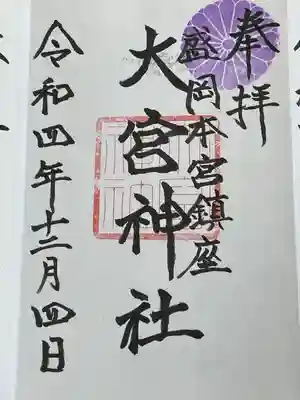 奉拝
盛岡本宮鎮座
大宮神社
令和四年十二月四日